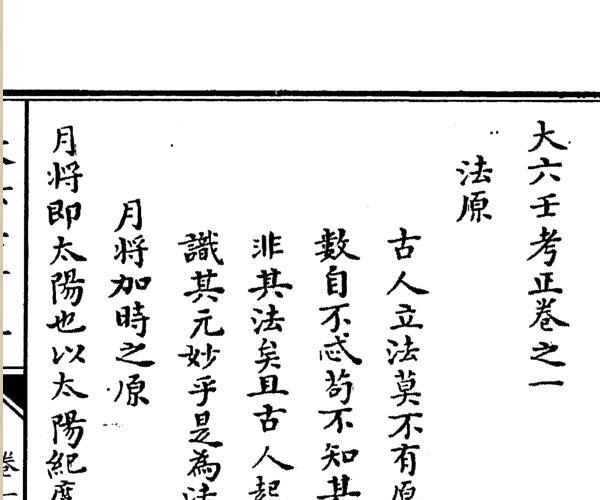 大六壬考正卷之一
法原
古人立法莫不有原
數自不忒苟不知其
非其法矣且古人起
識其元妙乎是為法
月將加時之原
月將即太陽也以太陽紀度
卷一